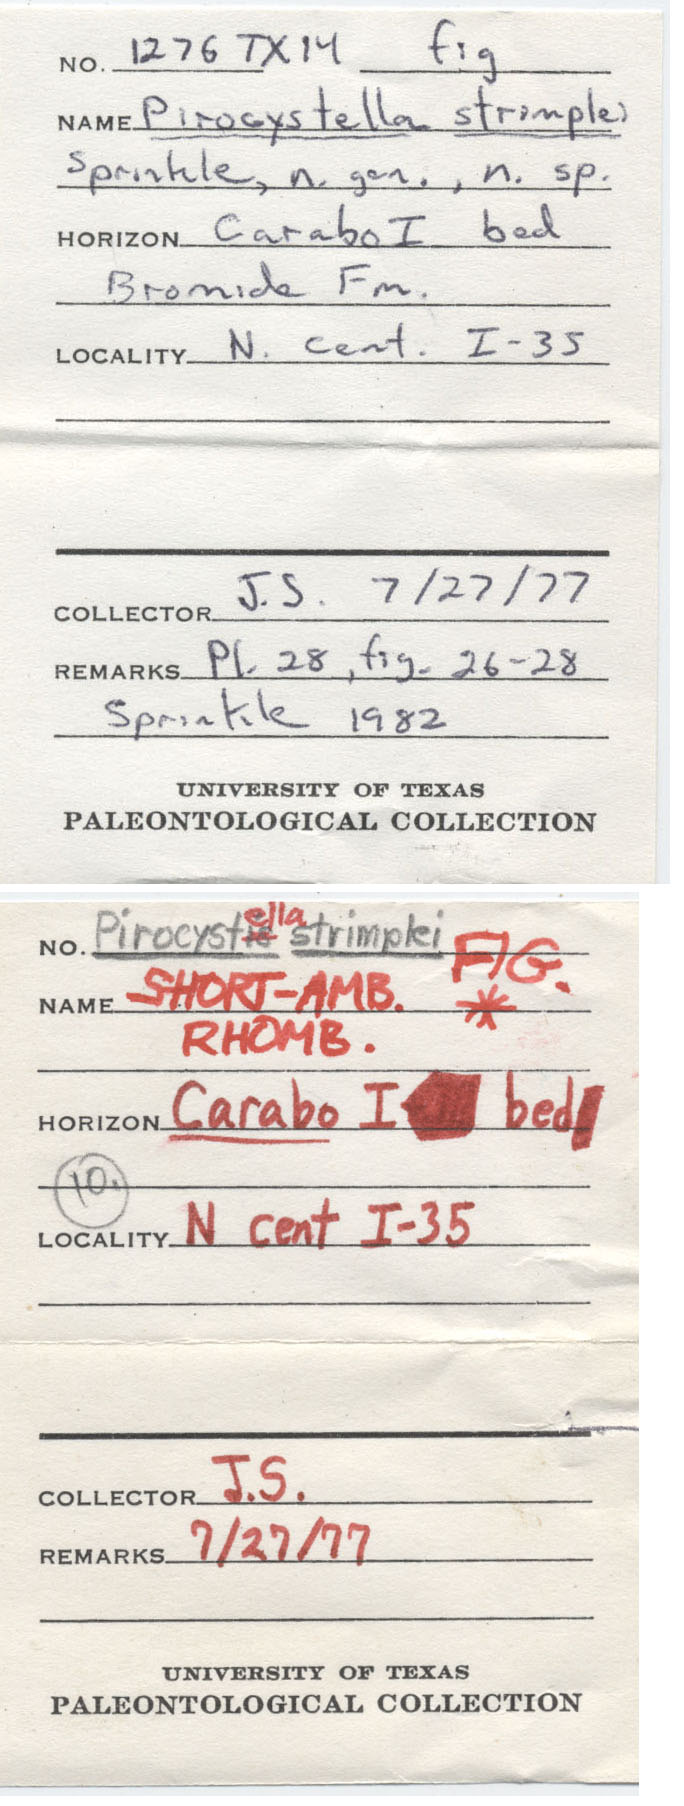 NO. 1276 TX 14 fig
NAME Pirocystella strimplei
Sprinkle, n. gen., n. sp.
HORIZON Carabo I bed
Bromide Fm.
LOCALITY N. cent. I-35
COLLECTOR J.S. 7/27/77
REMARKS Pl. 28, fig. 26-28
Sprinkle 1982
UNIVERSITY OF TEXAS
PALEONTOLOGICAL COLLECTION
ella
NO. Pirocystis strimplei FIG.
NAME SHORT-AMB. *
RHOMB.
HORIZON Carabo I bed
10.
LOCALITY N cent I-35
COLLECTOR J.S.
REMARKS 7/27/77
UNIVERSITY OF TEXAS
PALEONTOLOGICAL COLLECTION